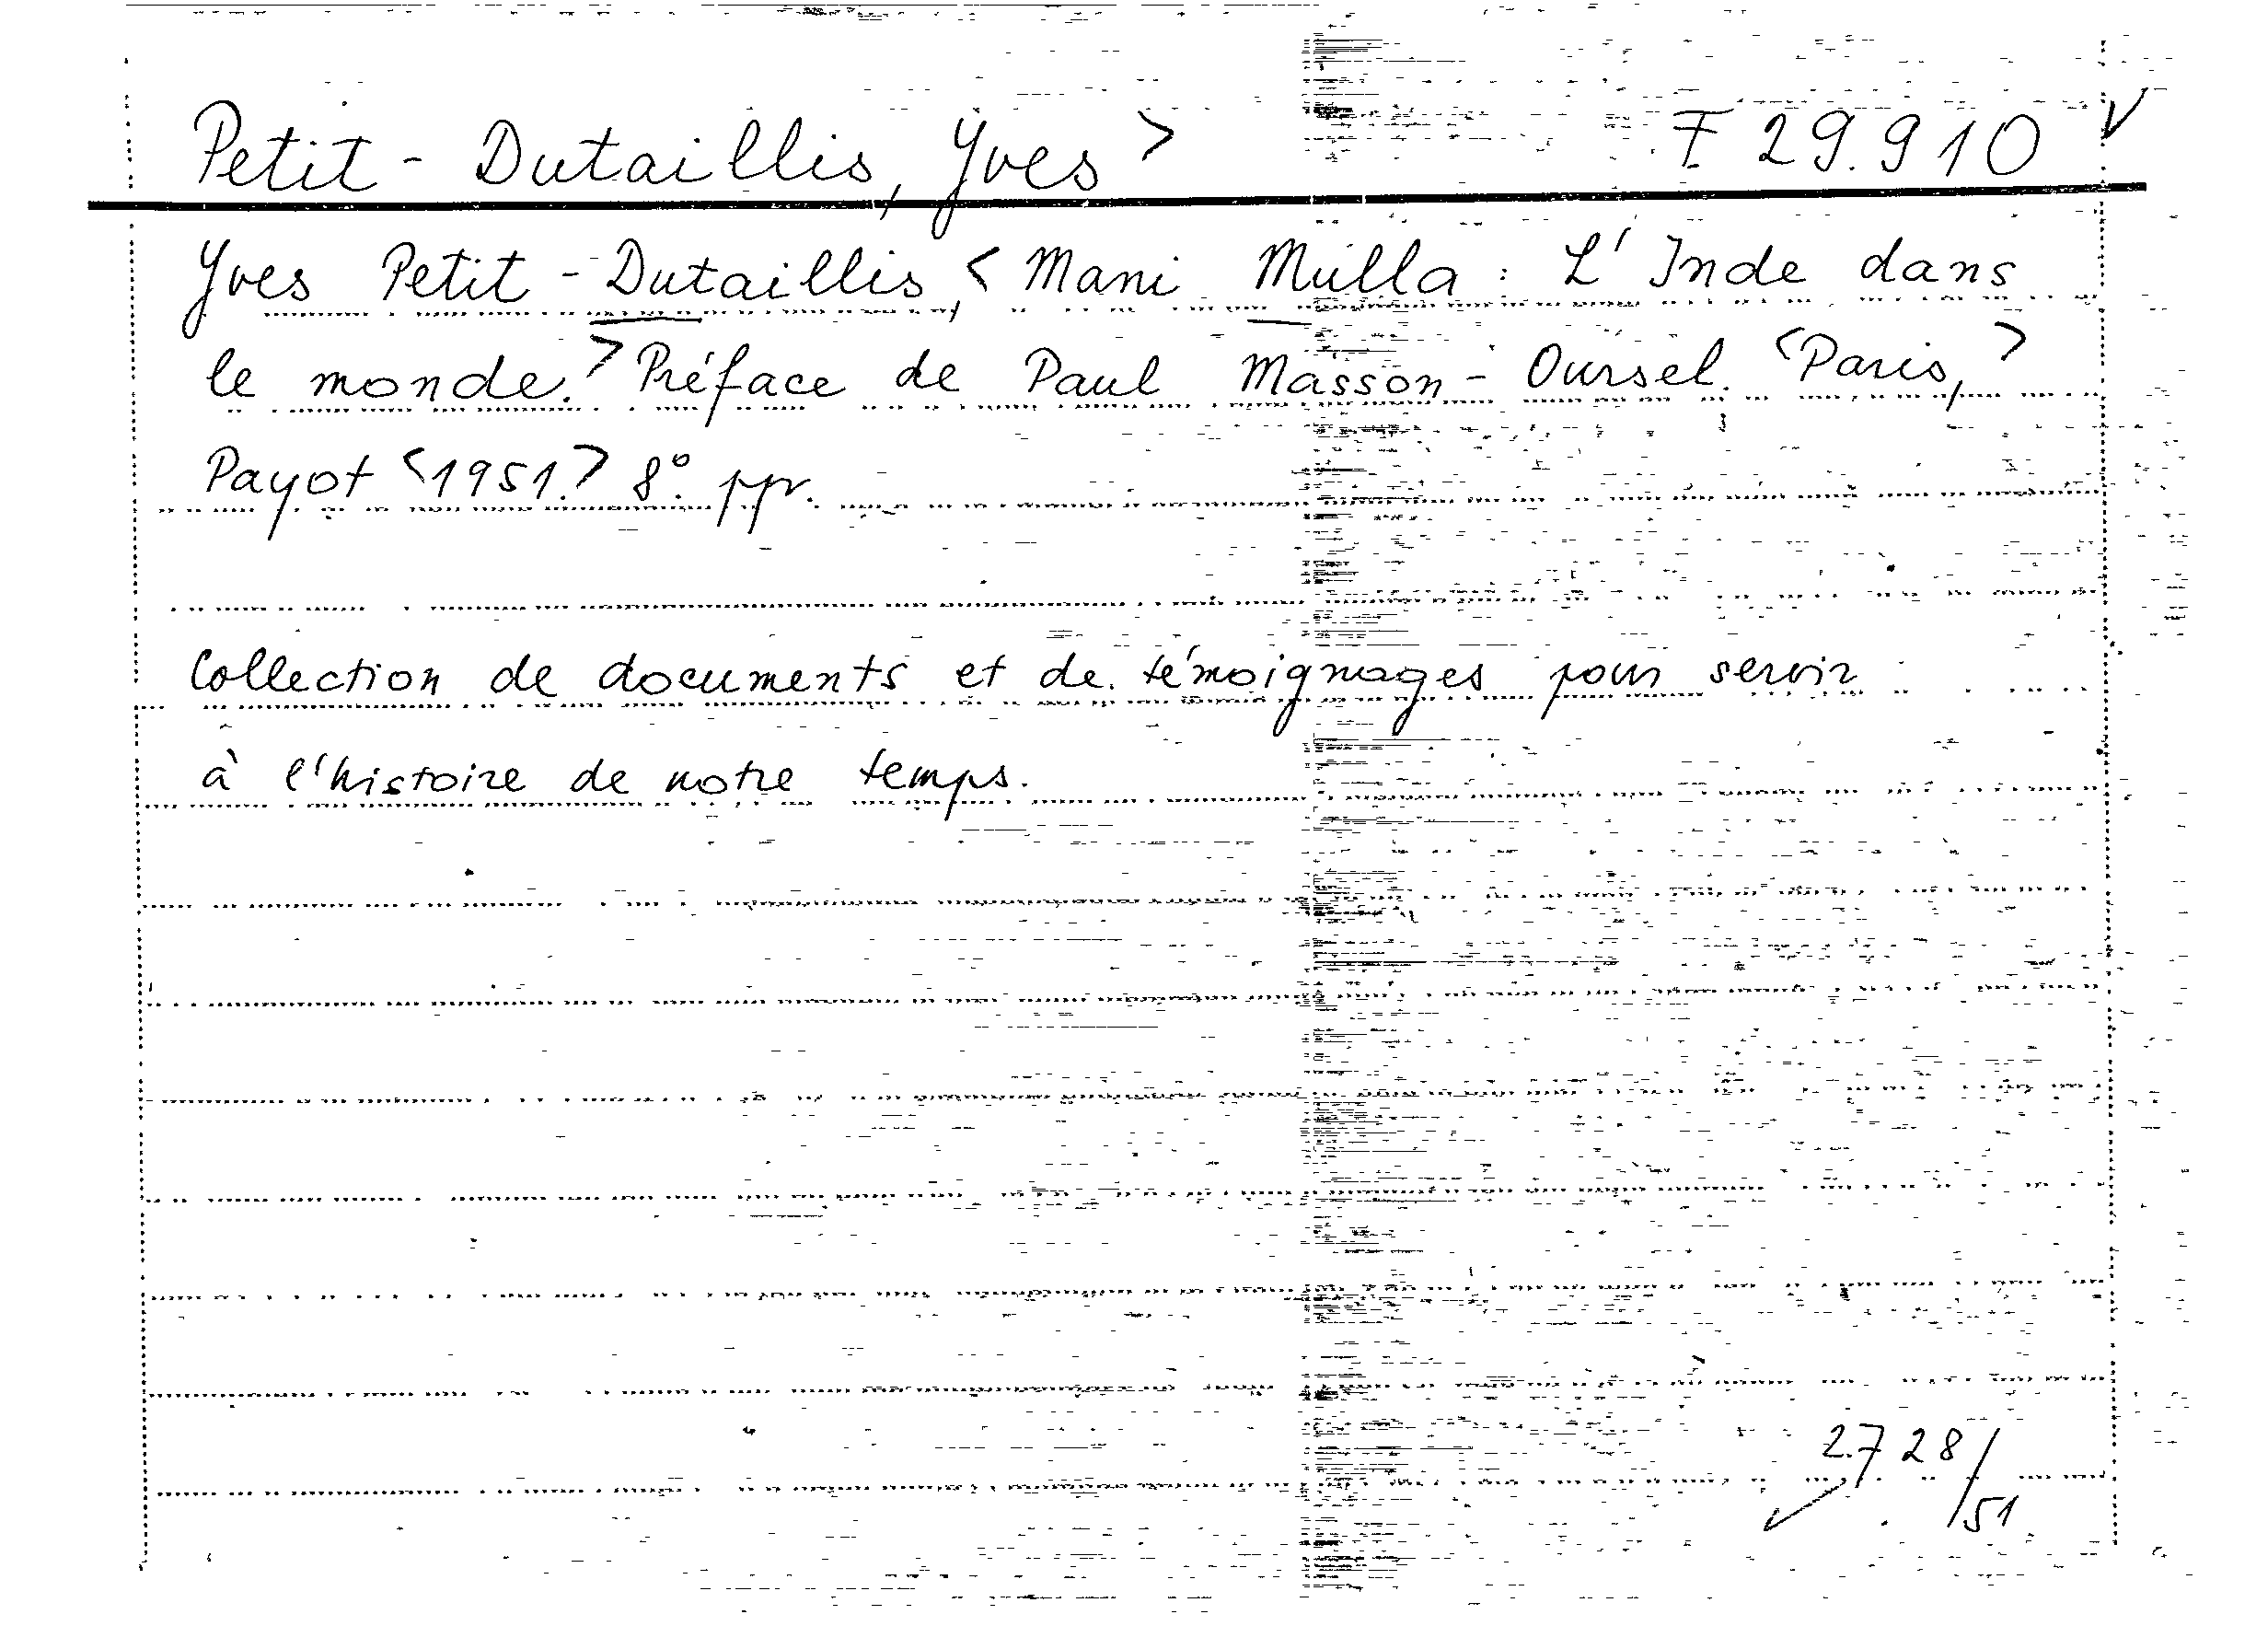 Petit-Dutaillis, Yves > F 29.910 √
Yves Petit-Dutaillis, < Mani Mulla: L'Inde dans
le monde. > Préface de Paul Masson-Oursel. < Paris, >
Payot < 1951. > 8°. ppr.
Collection de documents et de témoignages pour servir
à l'histoire de notre temps.
2728/51